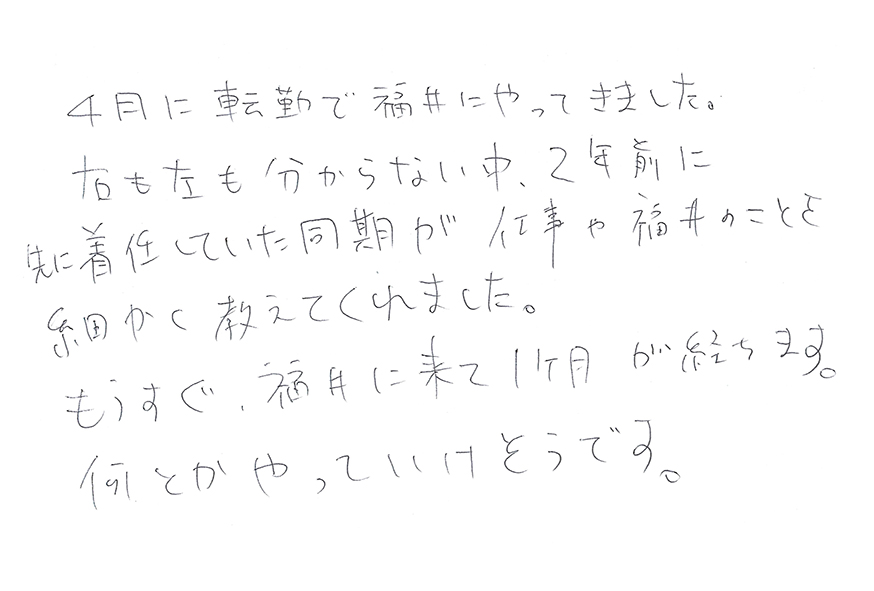 4月に転勤で福井にやってきました。
右も左も分からない中、2年前に
先に着任していた同期が仕事や福井のことを
細かく教えてくれました。
もうすぐ、福井に来て1ヶ月が経ちます。
何とかやっていけそうです。